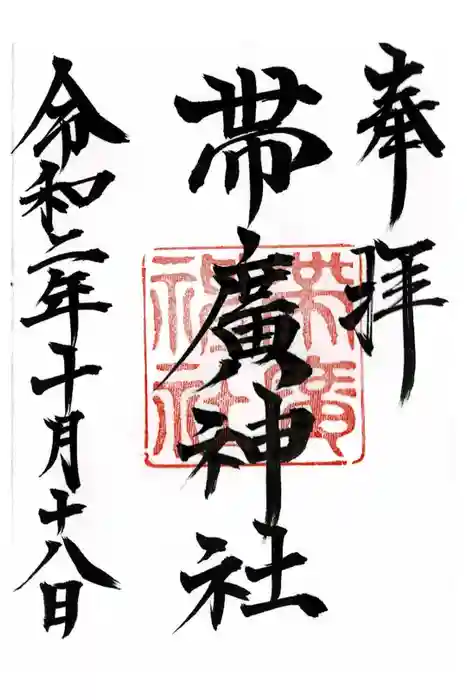 奉拝
帯廣神社
帯廣神社
令和二年十月十八日